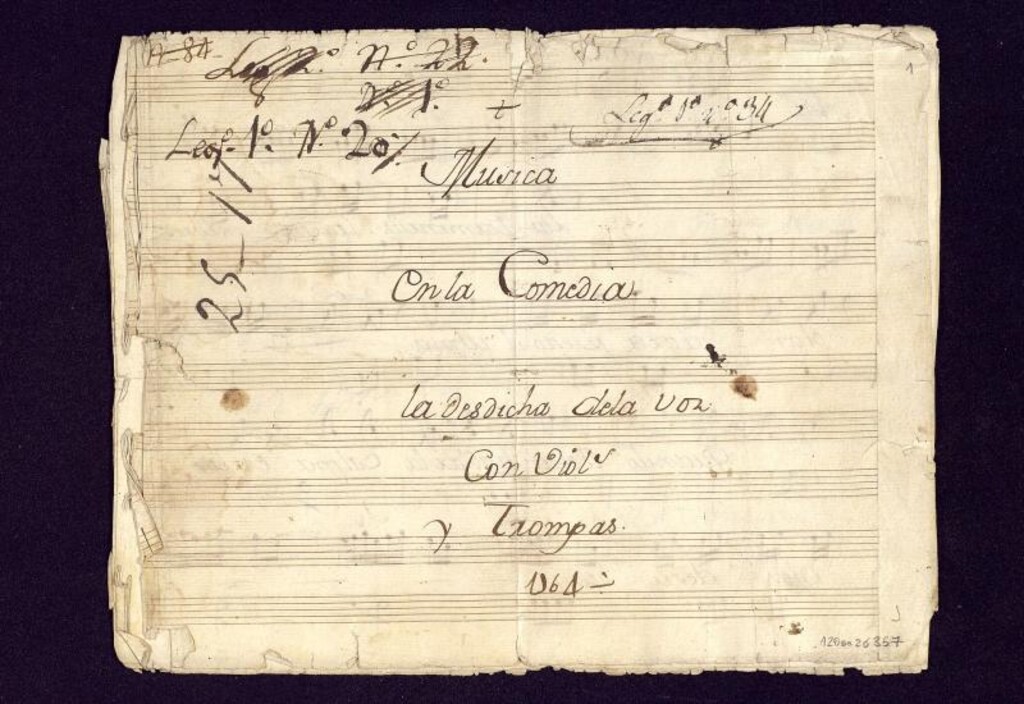 A-84
Leg. 2.º N.º 22.
N.º 1.º
+
Leg.º 1.º nº 34
1
Leg.º 1.º N.º 20/.
25-17
Musica
En la Comedia
la desdicha dela voz
Con Viol.s
y Trompas.
1764
J